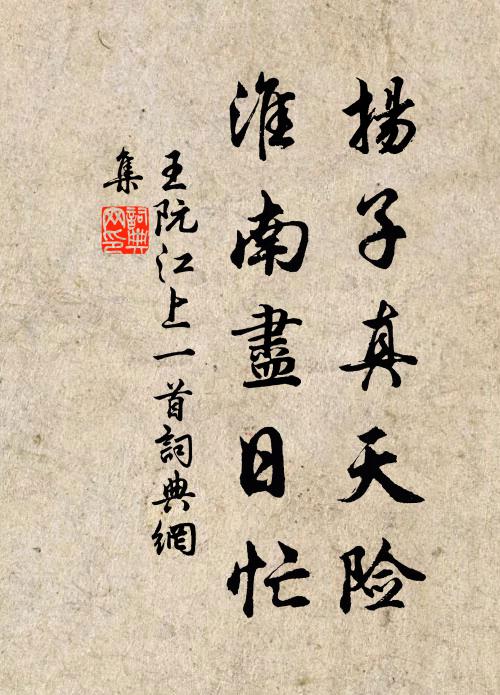 揚子真天险
淮南盡日忙
王阮江上一首詞典網
集
詞典
网印